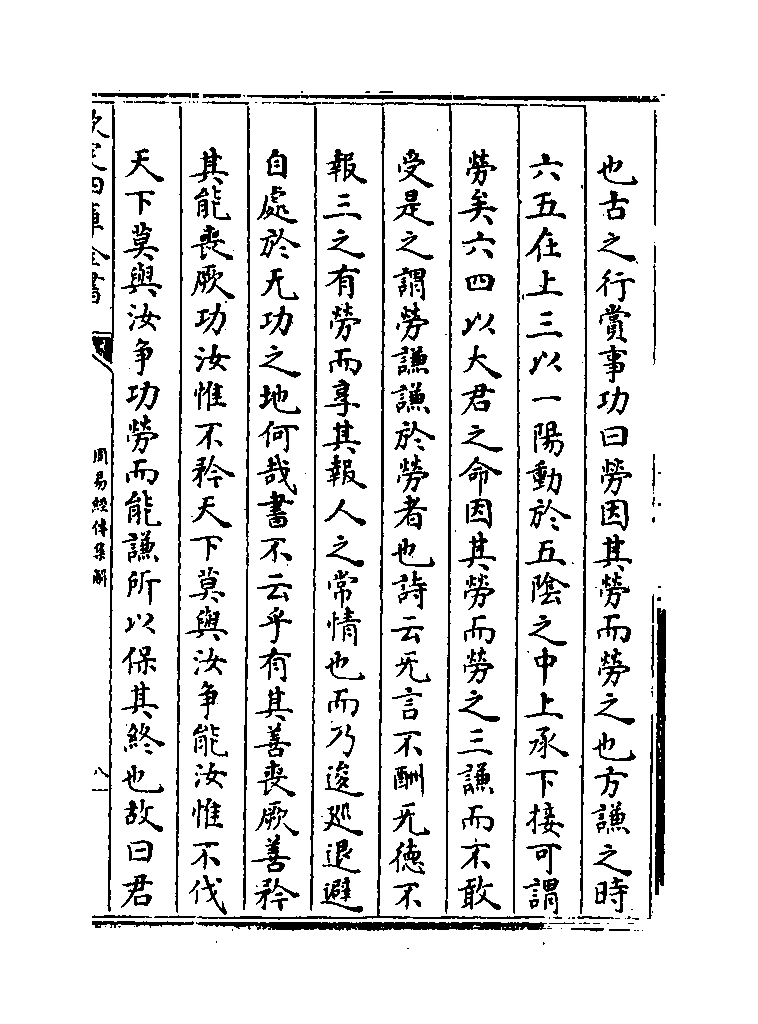 也古之行賞事功曰勞因其勞而勞之也方謙之時
六五在上三以一陽動於五陰之中上承下接可謂
勞矣六四以大君之命因其勞而勞之三謙而不敢
受是之謂勞謙謙於勞者也詩云无言不酬无德不
報三之有勞而享其報人之常情也而乃逡廵退避
自處於无功之地何哉書不云乎有其善喪厥善矜
其能喪厥功汝惟不矜天下莫與汝争能汝惟不伐
天下莫與汝争功勞而能謙所以保其終也故曰君
欽定四庫全書
周易經傳集解